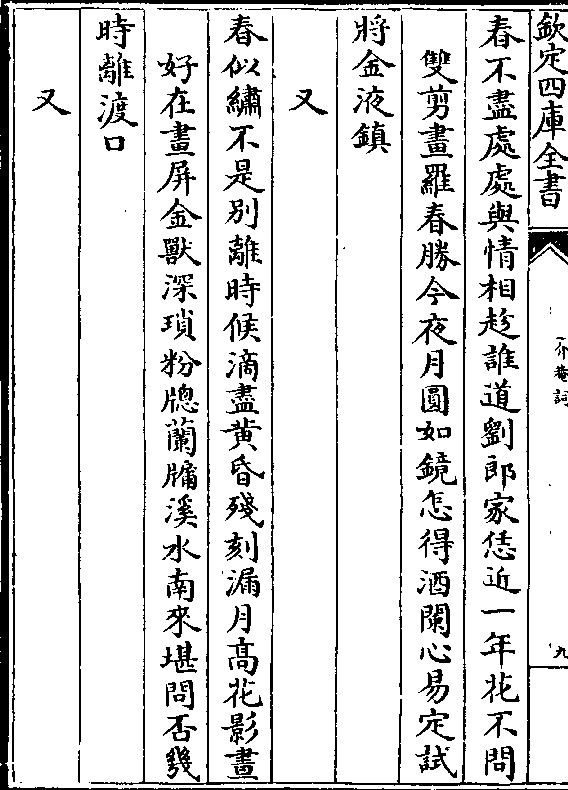 欽定四庫全書
介菴詞
九
春不盡處處與情相趁誰道劉郎家恁近一年花不問
雙剪畫羅春勝今夜月圓如鏡怎得酒闌心易定試
將金液鎮
又
春似繡不是別離時候滴盡黄昏殘刻漏月高花影晝
好在畫屏金獸深瑣粉牕蘭牖溪水南來堪問否幾
時離渡口
又